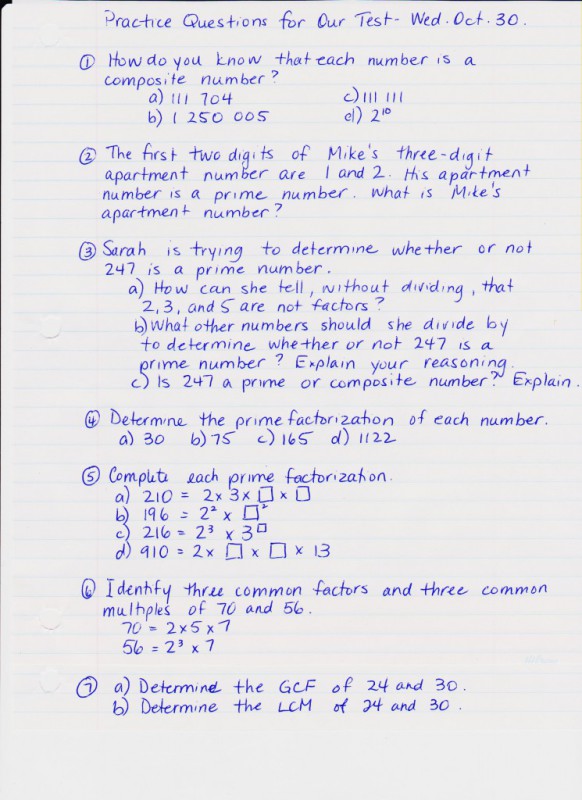 Practice Questions for Our Test- Wed. Oct. 30.
① How do you know that each number is a
composite number?
a) 111 704 c) 111 111
b) 1 250 005 d) 2¹⁰
② The first two digits of Mike's three-digit
apartment number are 1 and 2. His apartment
number is a prime number. What is Mike's
apartment number?
③ Sarah is trying to determine whether or not
247 is a prime number.
a) How can she tell, without dividing, that
2, 3, and 5 are not factors?
b) What other numbers should she divide by
to determine whether or not 247 is a
prime number? Explain your reasoning.
c) Is 247 a prime or composite number? Explain.
④ Determine the prime factorization of each number.
a) 30 b) 75 c) 165 d) 1122
⑤ Complete each prime factorization.
a) 210 = 2 x 3 x □ x □
b) 196 = 2² x □²
c) 216 = 2³ x 3□
d) 910 = 2 x □ x □ x 13
⑥ Identify three common factors and three common
multiples of 70 and 56.
70 = 2 x 5 x 7
56 = 2³ x 7
⑦ a) Determine the GCF of 24 and 30.
b) Determine the LCM of 24 and 30.